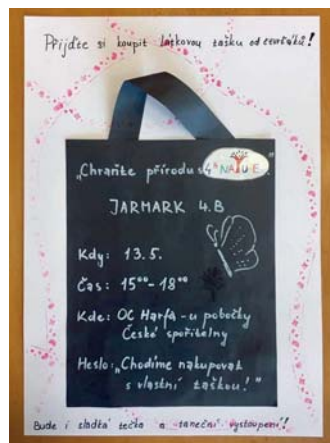 Přijďte si koupit látkovou tašku od čtvrťáků!
„Chraňte přírodu s 4B NATURE."
JARMARK 4.B
Kdy: 13.5.
Čas: 15⁰⁰-18⁰⁰
Kde: OC Harfa - u pobočky
České spořitelny
Heslo: „Chodíme nakupovat
s vlastní taškou!"
Bude i sladká tečka a taneční vystoupení!